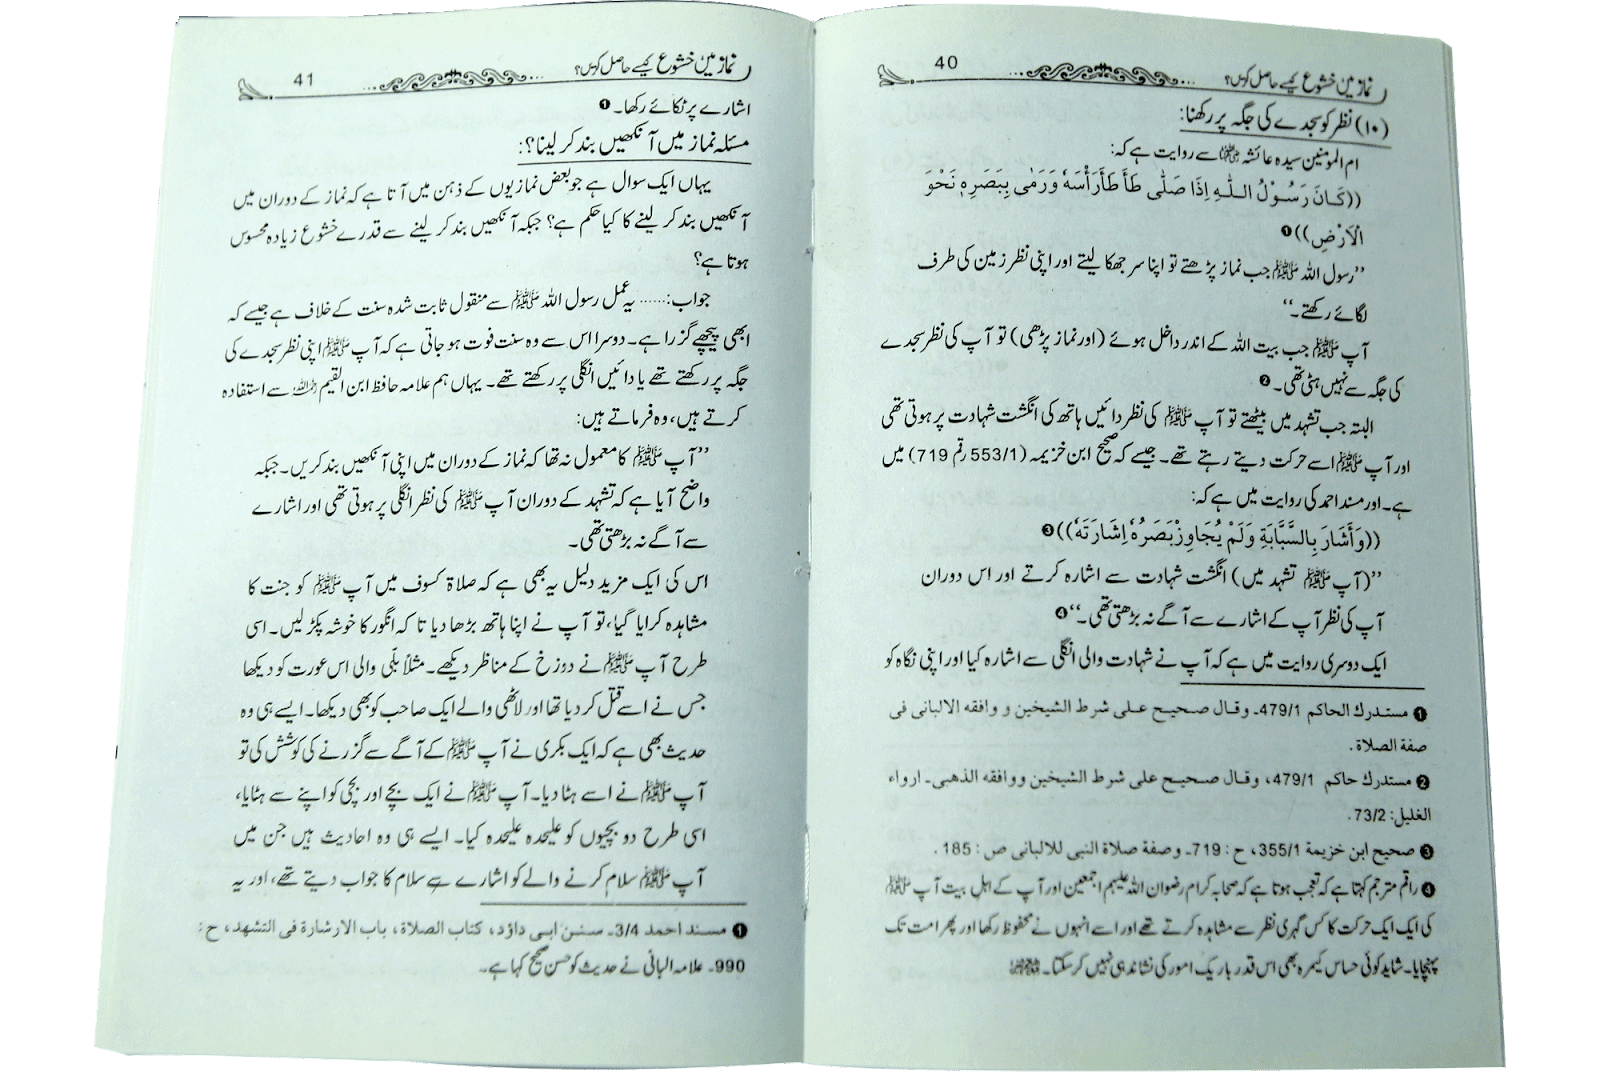 نماز میں خشوع کیسے حاصل کریں؟ 40
(۱۰) نظر کو سجدے کی جگہ پر رکھنا:
ام المومنین سیدہ عائشہ رضی اللہ عنہا سے روایت ہے کہ:
((كَانَ رَسُوْلُ اللّٰهِ اِذَا صَلّٰى طَأْ طَأَرَأْسَهٗ وَرَمٰى بِبَصَرِهٖ نَحْوَ
الْاَرْضِ))❶
”رسول اللہ ﷺ جب نماز پڑھتے تو اپنا سر جھکا لیتے اور اپنی نظر زمین کی طرف
لگائے رکھتے۔“
آپ ﷺ جب بیت اللہ کے اندر داخل ہوئے (اور نماز پڑھی) تو آپ کی نظر سجدے
کی جگہ سے نہیں ہٹی تھی۔❷
البتہ جب تشہد میں بیٹھتے تو آپ ﷺ کی نظر دائیں ہاتھ کی انگشت شہادت پر ہوتی تھی
اور آپ ﷺ اسے حرکت دیتے رہتے تھے۔ جیسے کہ صحیح ابن خزیمہ (553/1 رقم 719) میں
ہے۔ اور مسند احمد کی روایت میں ہے کہ:
((وَأَشَارَ بِالسَّبَّابَةِ وَلَمْ يُجَاوِزْبَصَرُهٗ اِشَارَتَهٗ))❸
”(آپ ﷺ تشہد میں) انگشت شہادت سے اشارہ کرتے اور اس دوران
آپ کی نظر آپ کے اشارے سے آگے نہ بڑھتی تھی۔“❹
ایک دوسری روایت میں ہے کہ آپ نے شہادت والی انگلی سے اشارہ کیا اور اپنی نگاہ کو
❶ مستدرك الحاكم 479/1۔ وقال صحيح على شرط الشيخين و وافقه الالبانى فى
صفة الصلاة.
❷ مستدرك حاكم 479/1، وقال صحيح على شرط الشيخين ووافقه الذهبى۔ ارواء
الغليل: 73/2.
❸ صحيح ابن خزيمة 355/1، ح: 719۔ وصفة صلاة النبى للالبانى ص: 185.
❹ راقم مترجم کہتا ہے کہ تعجب ہوتا ہے کہ صحابہ کرام رضوان اللہ علیہم اجمعین اور آپ کے اہل بیت آپ ﷺ
کی ایک ایک حرکت کا کس گہری نظر سے مشاہدہ کرتے تھے اور اسے انہوں نے محفوظ رکھا اور پھر امت تک
پہنچایا۔ شاید کوئی حساس کیمرہ بھی اس قدر باریک امور کی نشاندہی نہیں کر سکتا۔
نماز میں خشوع کیسے حاصل کریں؟ 41
اشارے پر ٹکائے رکھا۔❶
مسئلہ نماز میں آنکھیں بند کر لینا؟:
یہاں ایک سوال ہے جو بعض نمازیوں کے ذہن میں آتا ہے کہ نماز کے دوران میں
آنکھیں بند کر لینے کا کیا حکم ہے؟ جبکہ آنکھیں بند کر لینے سے قدرے خشوع زیادہ محسوس
ہوتا ہے؟
جواب:...... یہ عمل رسول اللہ ﷺ سے منقول ثابت شدہ سنت کے خلاف ہے جیسے کہ
ابھی پیچھے گزرا ہے۔ دوسرا اس سے وہ سنت فوت ہو جاتی ہے کہ آپ ﷺ اپنی نظر سجدے کی
جگہ پر رکھتے تھے یا دائیں انگلی پر رکھتے تھے۔ یہاں ہم علامہ حافظ ابن القیم رحمہ اللہ سے استفادہ
کرتے ہیں، وہ فرماتے ہیں:
”آپ ﷺ کا معمول نہ تھا کہ نماز کے دوران میں اپنی آنکھیں بند کریں۔ جبکہ
واضح آیا ہے کہ تشہد کے دوران آپ ﷺ کی نظر انگلی پر ہوتی تھی اور اشارے
سے آگے نہ بڑھتی تھی۔
اس کی ایک مزید دلیل یہ بھی ہے کہ صلاۃ کسوف میں آپ ﷺ کو جنت کا
مشاہدہ کرایا گیا، تو آپ نے اپنا ہاتھ بڑھا دیا تا کہ انگور کا خوشہ پکڑ لیں۔ اسی
طرح آپ ﷺ نے دوزخ کے مناظر دیکھے۔ مثلاً بلّی والی اس عورت کو دیکھا
جس نے اسے قتل کر دیا تھا اور لاٹھی والے ایک صاحب کو بھی دیکھا۔ ایسے ہی وہ
حدیث بھی ہے کہ ایک بکری نے آپ ﷺ کے آگے سے گزرنے کی کوشش کی تو
آپ ﷺ نے اسے ہٹا دیا۔ آپ ﷺ نے ایک بچے اور بچی کو اپنے سے ہٹایا،
اسی طرح دو بچیوں کو علیحدہ علیحدہ کیا۔ ایسے ہی وہ احادیث ہیں جن میں
آپ ﷺ سلام کرنے والے کو اشارے سے سلام کا جواب دیتے تھے، اور یہ
❶ مسند احمد 3/4۔ سنن ابى داؤد، كتاب الصلاة، باب الارشارة فى التشهد، ح:
990۔ علامہ البانی نے حدیث کو حسن صحیح کہا ہے۔